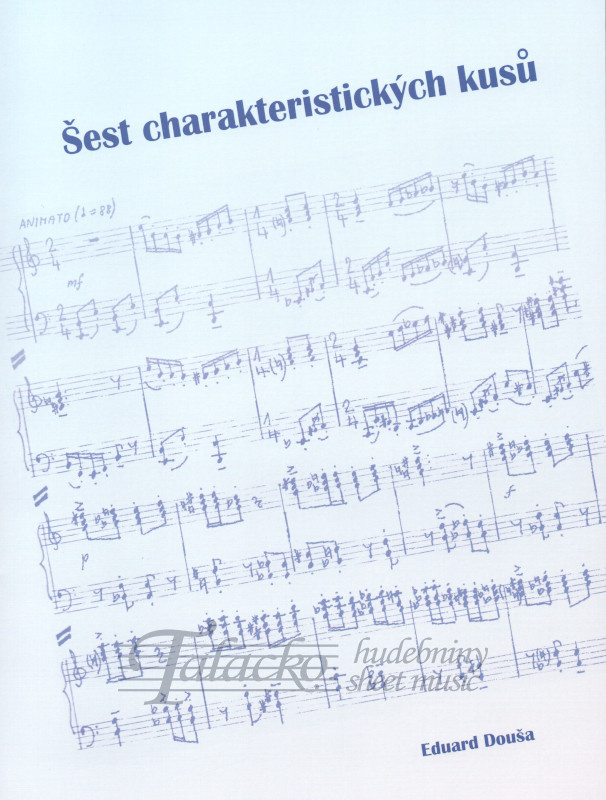 Šest charakteristických kusů
ANIMATO (♩=88)
mf
p
f
Talacko
hudebniny
sheet music
Eduard Douša